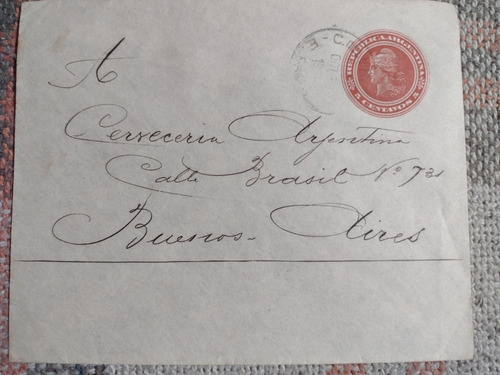 REPUBLICA ARGENTINA
5 CENTAVOS 5
A
Cerveceria Argentina
Calle Brasil No 731
Buenos-Aires